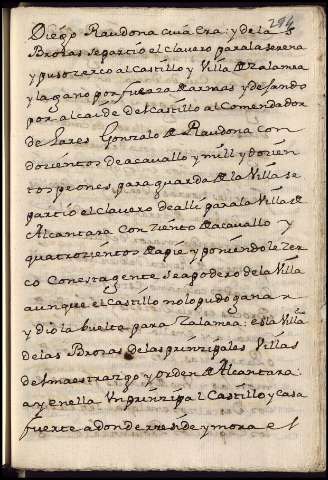 294
Diego Raudona cuia Era: y de la s
Brozas se partio el clavero para la serena
y puso zerco al Castillo y Villa de zalamea
y la gano por fuerza de armas y dejando
por alcaide del castillo al Comendador
de Lares Gonzalo de Raudona con
dozientos de acavallo y mill y dozien
tos peones, para guarda de la Villa se
partio el clavero de alli para la Villa de
Alcantara con ziento de acavallo y
quatrozientos de apie y poniendole zer
co con esta gente se apodero de la Villa
aunque el Castillo no lo pudo gana r
y dio la buelta para Zalamea: es la Villa
de las Brozas de las prinzipales Villas
del maestrazgo y orden de Alcantara:
ay en ella Un prinzipal Castillo y casa
fuerte a donde rreside y mora e l